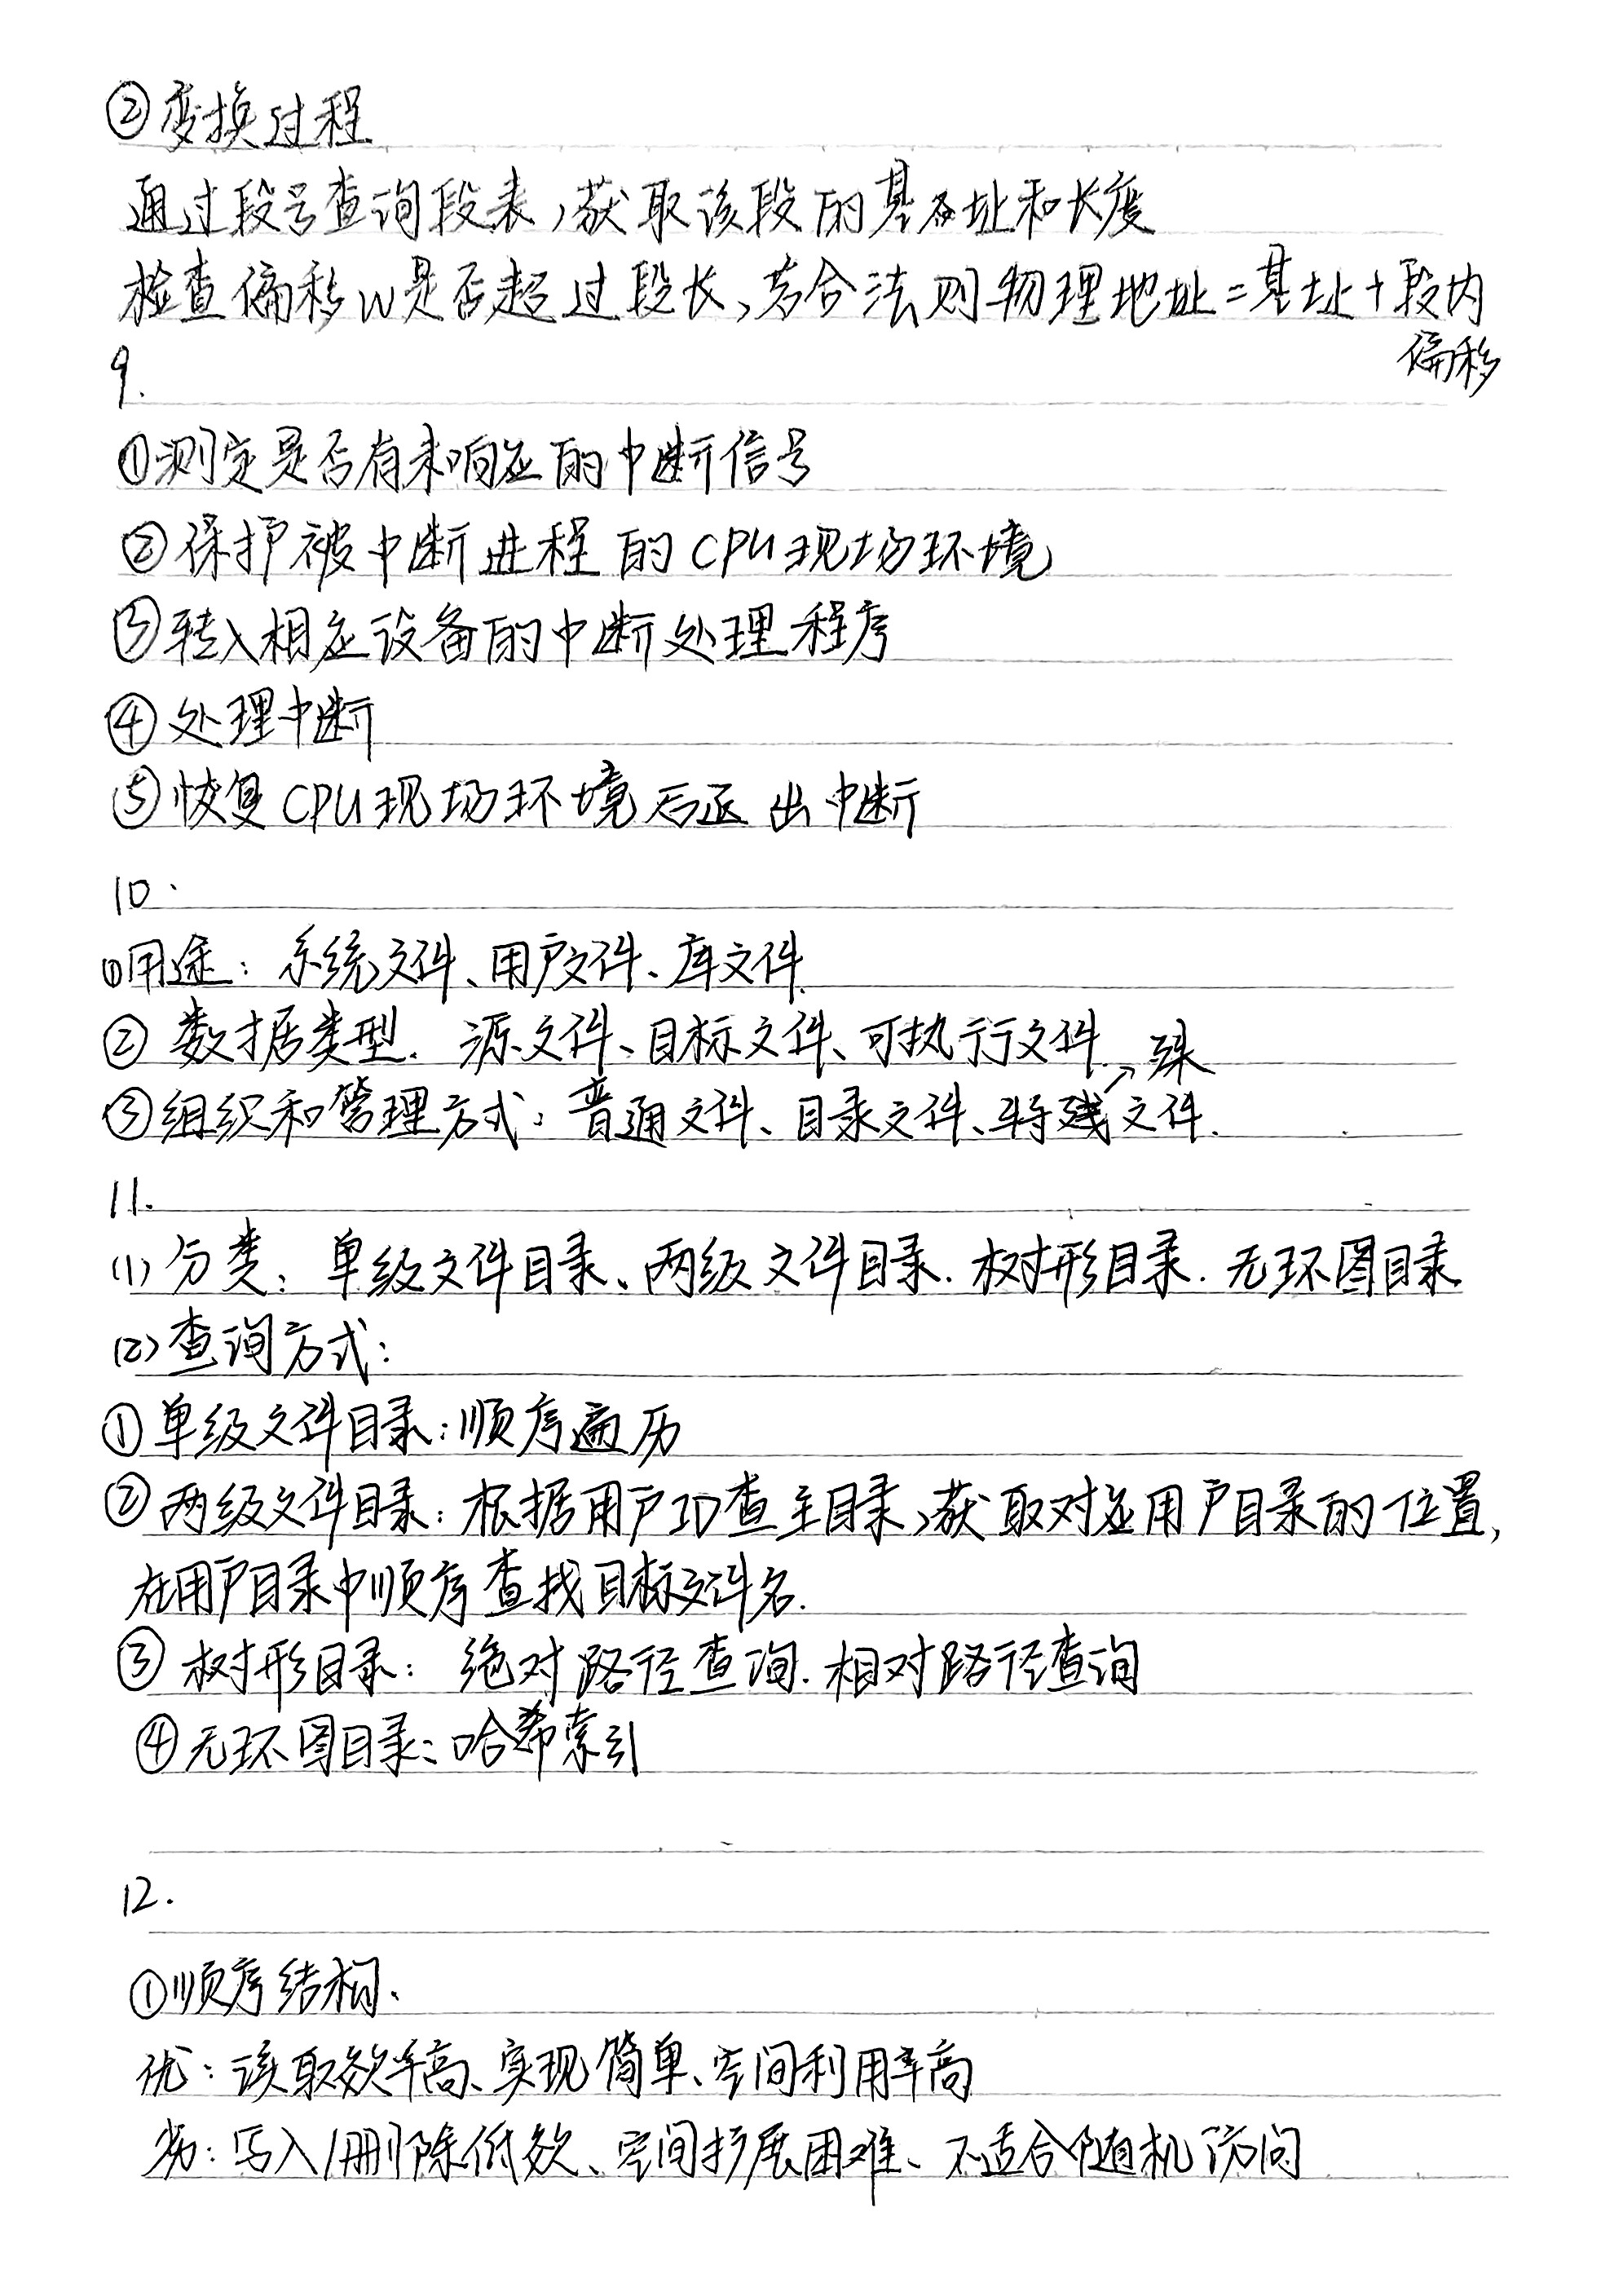 ②变换过程
通过段号查询段表,获取该段的基址和长度
检查偏移W是否超过段长,若合法则物理地址=基址+段内
偏移
9.
①测定是否有未响应的中断信号
②保护被中断进程的CPU现场环境
③转入相应设备的中断处理程序
④处理中断
⑤恢复CPU现场环境后退出中断
10.
①用途:系统文件、用户文件、库文件.
②数据类型.源文件、目标文件、可执行文件.
殊
③组织和管理方式:普通文件、目录文件、特残文件.
11.
(1)分类:单级文件目录、两级文件目录.树形目录.无环图目录
(2)查询方式:
①单级文件目录:顺序遍历
②两级文件目录:根据用户ID查主目录,获取对应用户目录的位置,
在用户目录中顺序查找目标文件名.
③树形目录:绝对路径查询.相对路径查询
④无环图目录:哈希索引
12.
①顺序结构.
优:读取效率高、实现简单、空间利用率高
劣:写入/删除低效、空间扩展困难、不适合随机访问